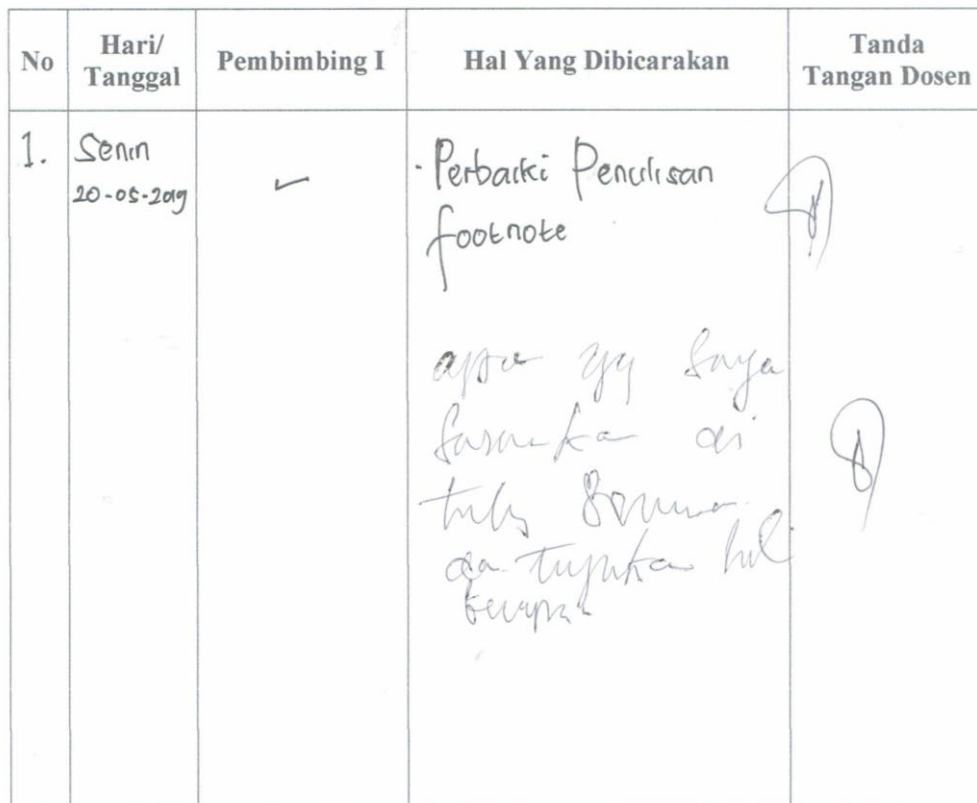 No
Hari/
Tanggal
Pembimbing I
Hal Yang Dibicarakan
Tanda
Tangan Dosen
1.
Senin
20-05-2019
- Perbaiki Penulisan
footnote
apa yg Saya
Sarankan di
tulis Semua
dan tujukan hal
berapa